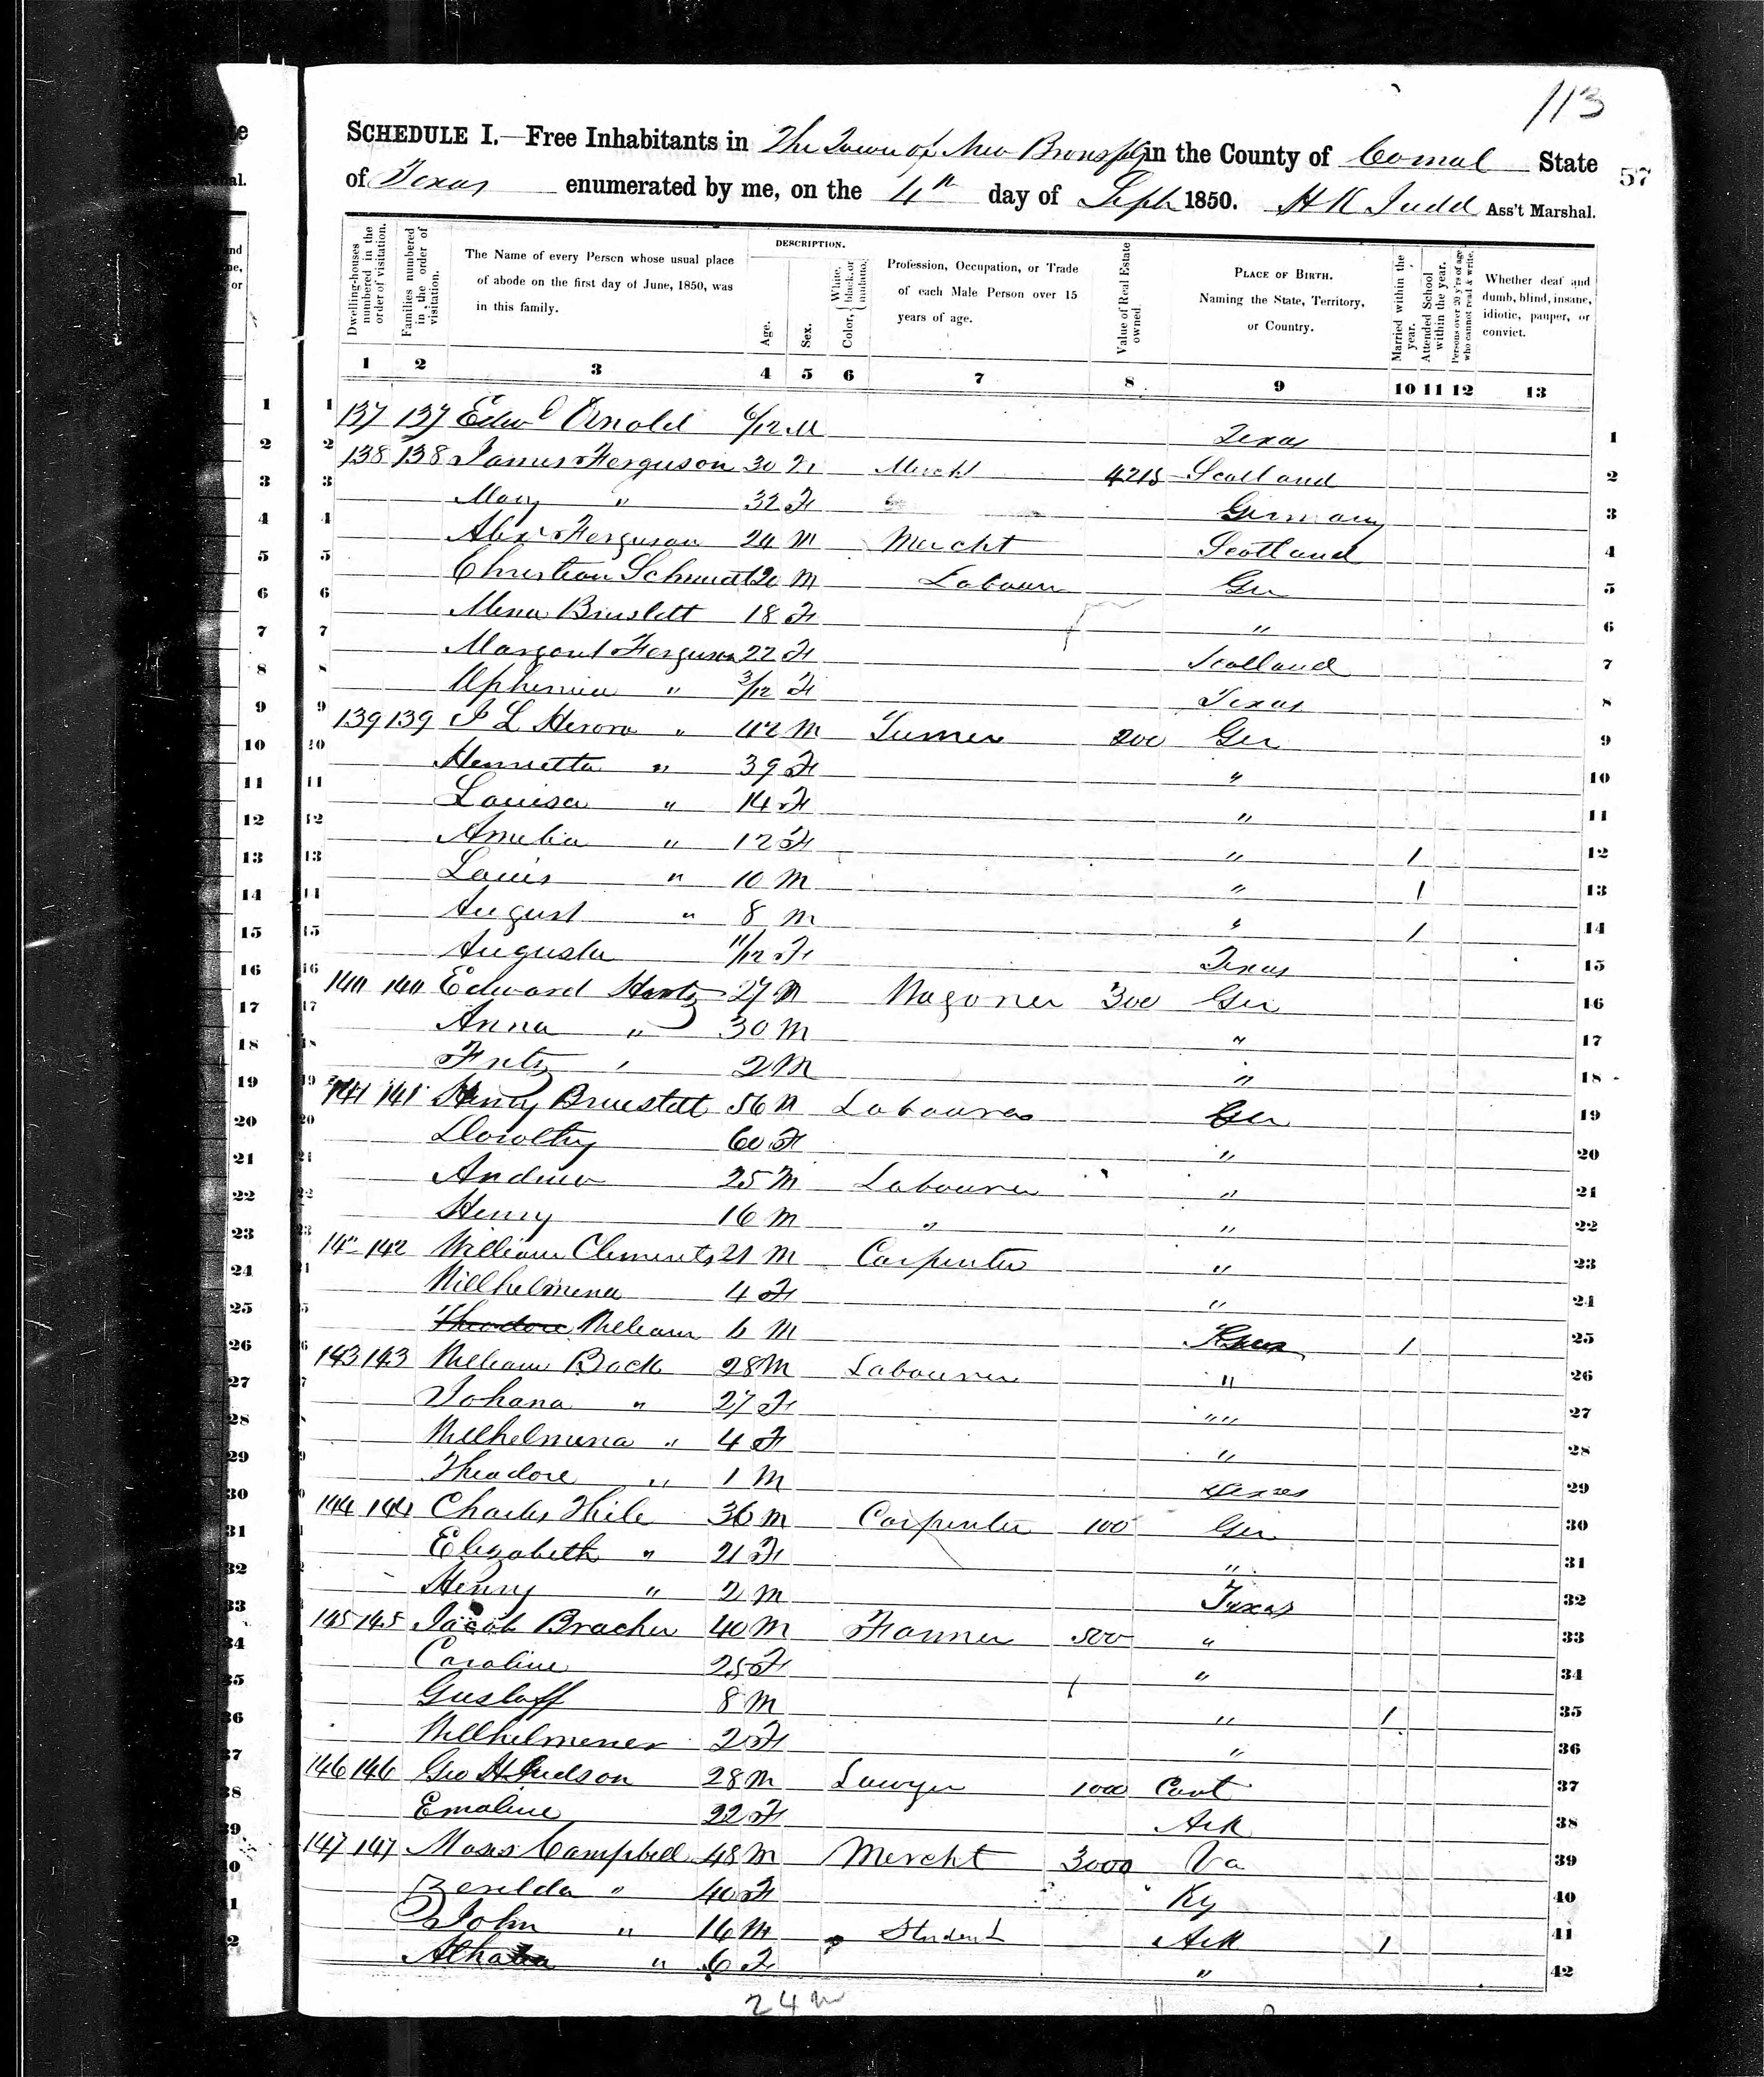 113
SCHEDULE I.—Free Inhabitants in The Town of New Bronsfels in the County of Comal State
57
of Texas enumerated by me, on the 4th day of Sept 1850. H K Judd Ass't Marshal.
Dwelling-houses numbered in the order of visitation.
Families numbered in the order of visitation.
The Name of every Person whose usual place of abode on the first day of June, 1850, was in this family.
DESCRIPTION.
Age.
Sex.
Color, White, black, or mulatto.
Profession, Occupation, or Trade of each Male Person over 15 years of age.
Value of Real Estate owned.
PLACE OF BIRTH. Naming the State, Territory, or Country.
Married within the year.
Attended School within the year.
Persons over 20 y'rs of age who cannot read & write.
Whether deaf and dumb, blind, insane, idiotic, pauper, or convict.
1 2 3 4 5 6 7 8 9 10 11 12 13
1 137 137 Edwd Arnold 6/12 M Texas 1
2 138 138 James Ferguson 30 Mercht 4215 Scotland 2
3 Mary " 32 F Germany 3
4 Alexr Ferguson 24 M Mercht Scotland 4
5 Christian Schmidt 20 M Labourer Ger 5
6 Mena 18 F " 6
7 Margaret Ferguson 22 F Scotland 7
8 Uphemia " 3/12 F Texas 8
9 139 139 " 42 M Turner 200 Ger 9
10 Henrietta " 39 F " 10
11 Louisa " 14 F " 11
12 Amelia " 12 F " 1 12
13 Louis " 10 M " 1 13
14 August " 8 M " 1 14
15 Augusta 11/12 F Texas 15
16 140 140 Edward Hartz 27 M Wagoner 300 Ger 16
17 Anna " 30 M " 17
18 Fritz " 2 M " 18
19 141 141 Henry Bruestett 56 M Labourer Ger 19
20 Dorothy 60 F " 20
21 Andrew 25 M Labourer " 21
22 Henry 16 M " " 22
23 142 William Clements 21 M Carpenter " 23
24 Willhelmena 4 F " 24
25 Theodore William 6 M 1 25
26 143 143 William Bock 28 M Labourer " 26
27 Johana " 27 F "" 27
28 Wilhelmina " 4 F " 28
29 Theodore " 1 M Texas 29
30 144 144 Charles Thile 36 M Carpenter 100 Ger 30
31 Elizabeth " 21 F " 31
32 Henry " 2 M Texas 32
33 145 145 Jacob Bracher 40 M Farmer 500 " 33
34 Caroline 25 F " 34
35 Gustaff 8 M " 1 35
36 Willhelmener 2 F " 36
37 146 146 Geo H Judson 28 M Lawyer 1000 Cont 37
38 Emaline 22 F Ark 38
39 147 147 Moses Campbell 48 M Mercht 3000 Va 39
40 Zerelda " 40 F Ky 40
41 John " 16 M Student Ark 1 41
42 " 6 F " 42
24 m